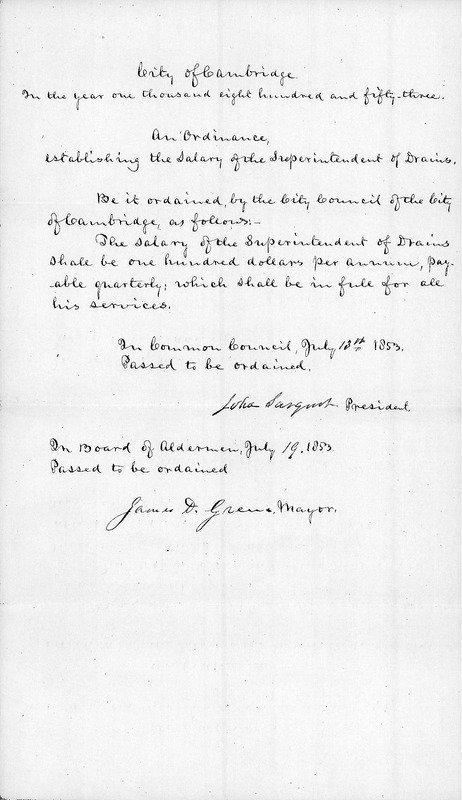 City of Cambridge.
In the year one thousand eight hundred and fifty-three.
An Ordinance,
establishing the Salary of the Superintendent of Drains.
Be it ordained, by the City Council of the City
of Cambridge, as follows:-
The Salary of the Superintendent of Drains
shall be one hundred dollars per annum, pay-
able quarterly; which shall be in full for all
his services.
In Common Council, July 13th 1853.
Passed to be ordained,
John Sargent President
In Board of Aldermen, July 19. 1853.
Passed to be ordained
James D. Green, Mayor.